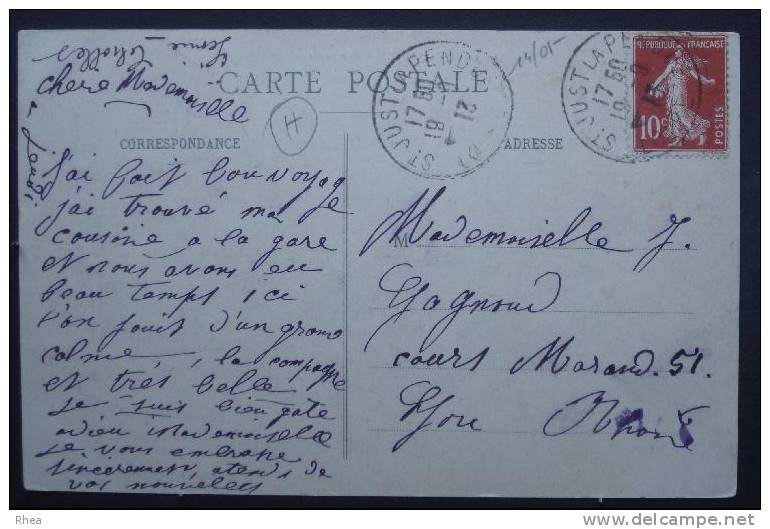 CARTE POSTALE
chère Mademoiselle
H
CORRESPONDANCE
ADRESSE
ST JUST LA PEND
17 50
ST JUST LA P
17 50
REPUBLIQUE FRANÇAISE
10c
POSTES
à jeudi
J'ai fait bon voyage
j'ai trouvé ma
cousine a la gare
et nous avons eu
beau temps ici
l'on jouit d'un grand
calme, la compagne
et très belle
je suis bien gate
adieu Mademoiselle
je vous embrasse
sincèrement, atends de
vos nouvelles
M
Mademoiselle J.
Gagnoud
cours Morand. 51.
Lyon Rhone
Rhea
delcampe.net